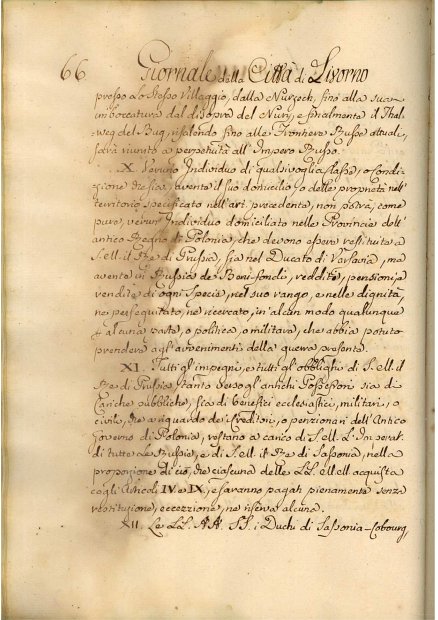 66 Giornale della Città di Livorno
presso lo stesso Villaggio, dalla Nurzeck, fino alla sua
imboccatura dal disopra del Nury, e finalmente il Thal-
weg del Bug, risalendo fino alle Frontiere Russe attuali,
sarà riunito a perpetuità all'Impero Russo.
X. Veruno Individuo di qualsivoglia classe, o condi-
zione che sia, avente il suo domicilio, o delle proprietà nell'
territorio specificato nell'art. precedente, non potrà, come
pure verun Individuo domiciliato nelle Provincie dell'
antico Regno di Polonia, che devono essere restituite a
S. M. il Re di Prussia, sia nel Ducato di Varsavia, ma
avente in Russia de Beni-fondi, reddite, pensioni, e
rendite di ogni specie, nel suo rango, e nelle dignità,
ne perseguitato, ne ricercato, in alcun modo qualunque
alcuna parte, o politica, o militare, che abbia potuto
prendere agli avvenimenti della guerra presente.
XI. Tutti gl'impegni, e tutti gli obblighi di S. M. il
Re di Prussia tanto verso gli antichi Possessori sia di
Cariche pubbliche, sia di benefizi ecclesiastici, militari, o
civili, che a riguardo de' Creditori, o penzionari dell'Antico
Governo di Polonia, restano a carico di S. M. L'Imperat.
di tutte le Russie, e di S. M. il Re di Sassonia, nella
proporzione di ciò, che ciascuna delle LL. MM. acquista
cogli Articoli IV. e IX, e saranno pagati pienamente senza
restituzione, eccezzione, ne riserva alcuna.
XII. Le LL. AA. SS. i Duchi di Sassonia-Cobourg,